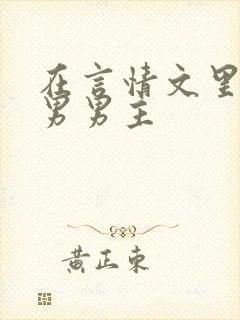 在言情文里
男男主
黄正东